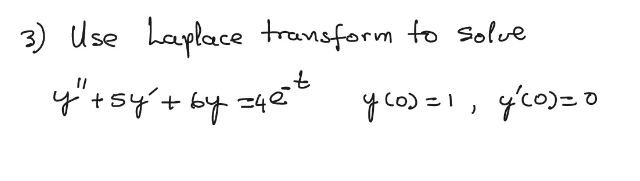 3) Use Laplace transform to solve
y'' + 5y' + 6y = 4e^-t y(0) = 1 , y'(0) = 0